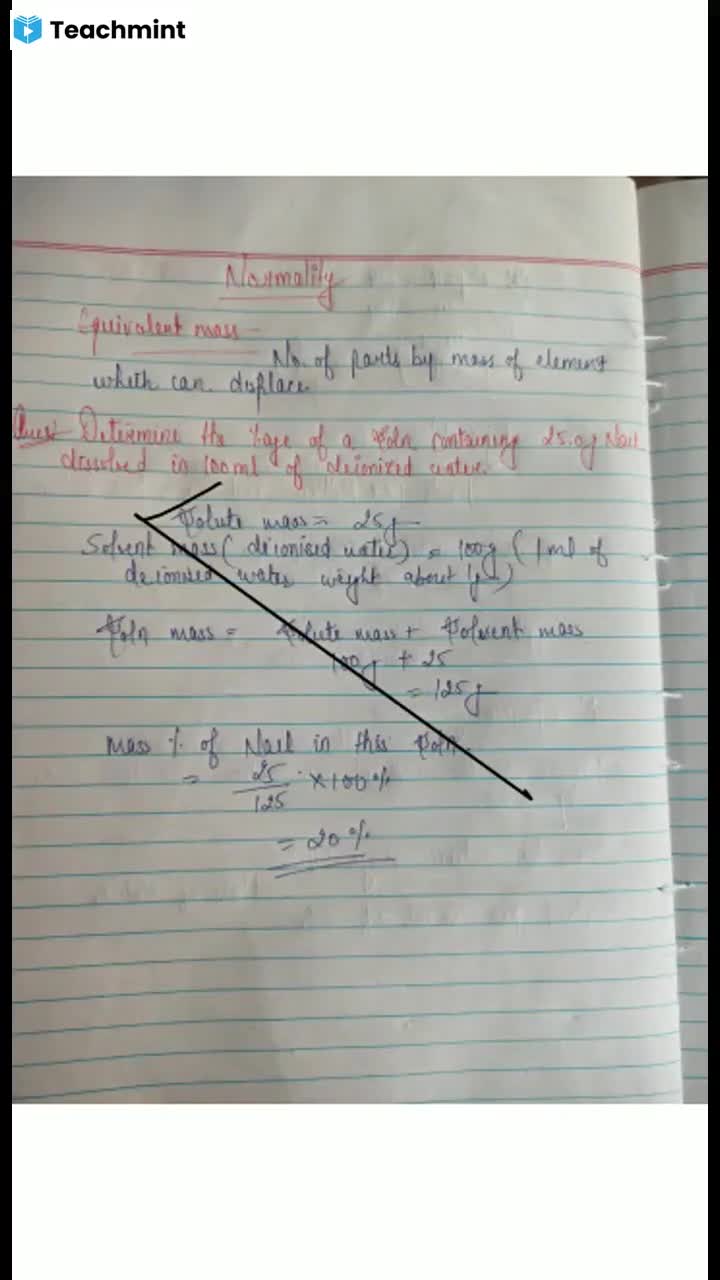 Teachmint
Normality
Equivalent mass -
No. of parts by mass of element
which can displace
Ques! Determine the %age of a soln containing 25.0g NaCl
dissolved in 100ml of deionized water.
Solute mass = 25g
Solvent mass (deionised water) = 100g (1ml of
deionised water weight about 1g)
Soln mass = Solute mass + Solvent mass
100g + 25
= 125g
Mass % of NaCl in this soln
= 25/125 × 100%
= 20%